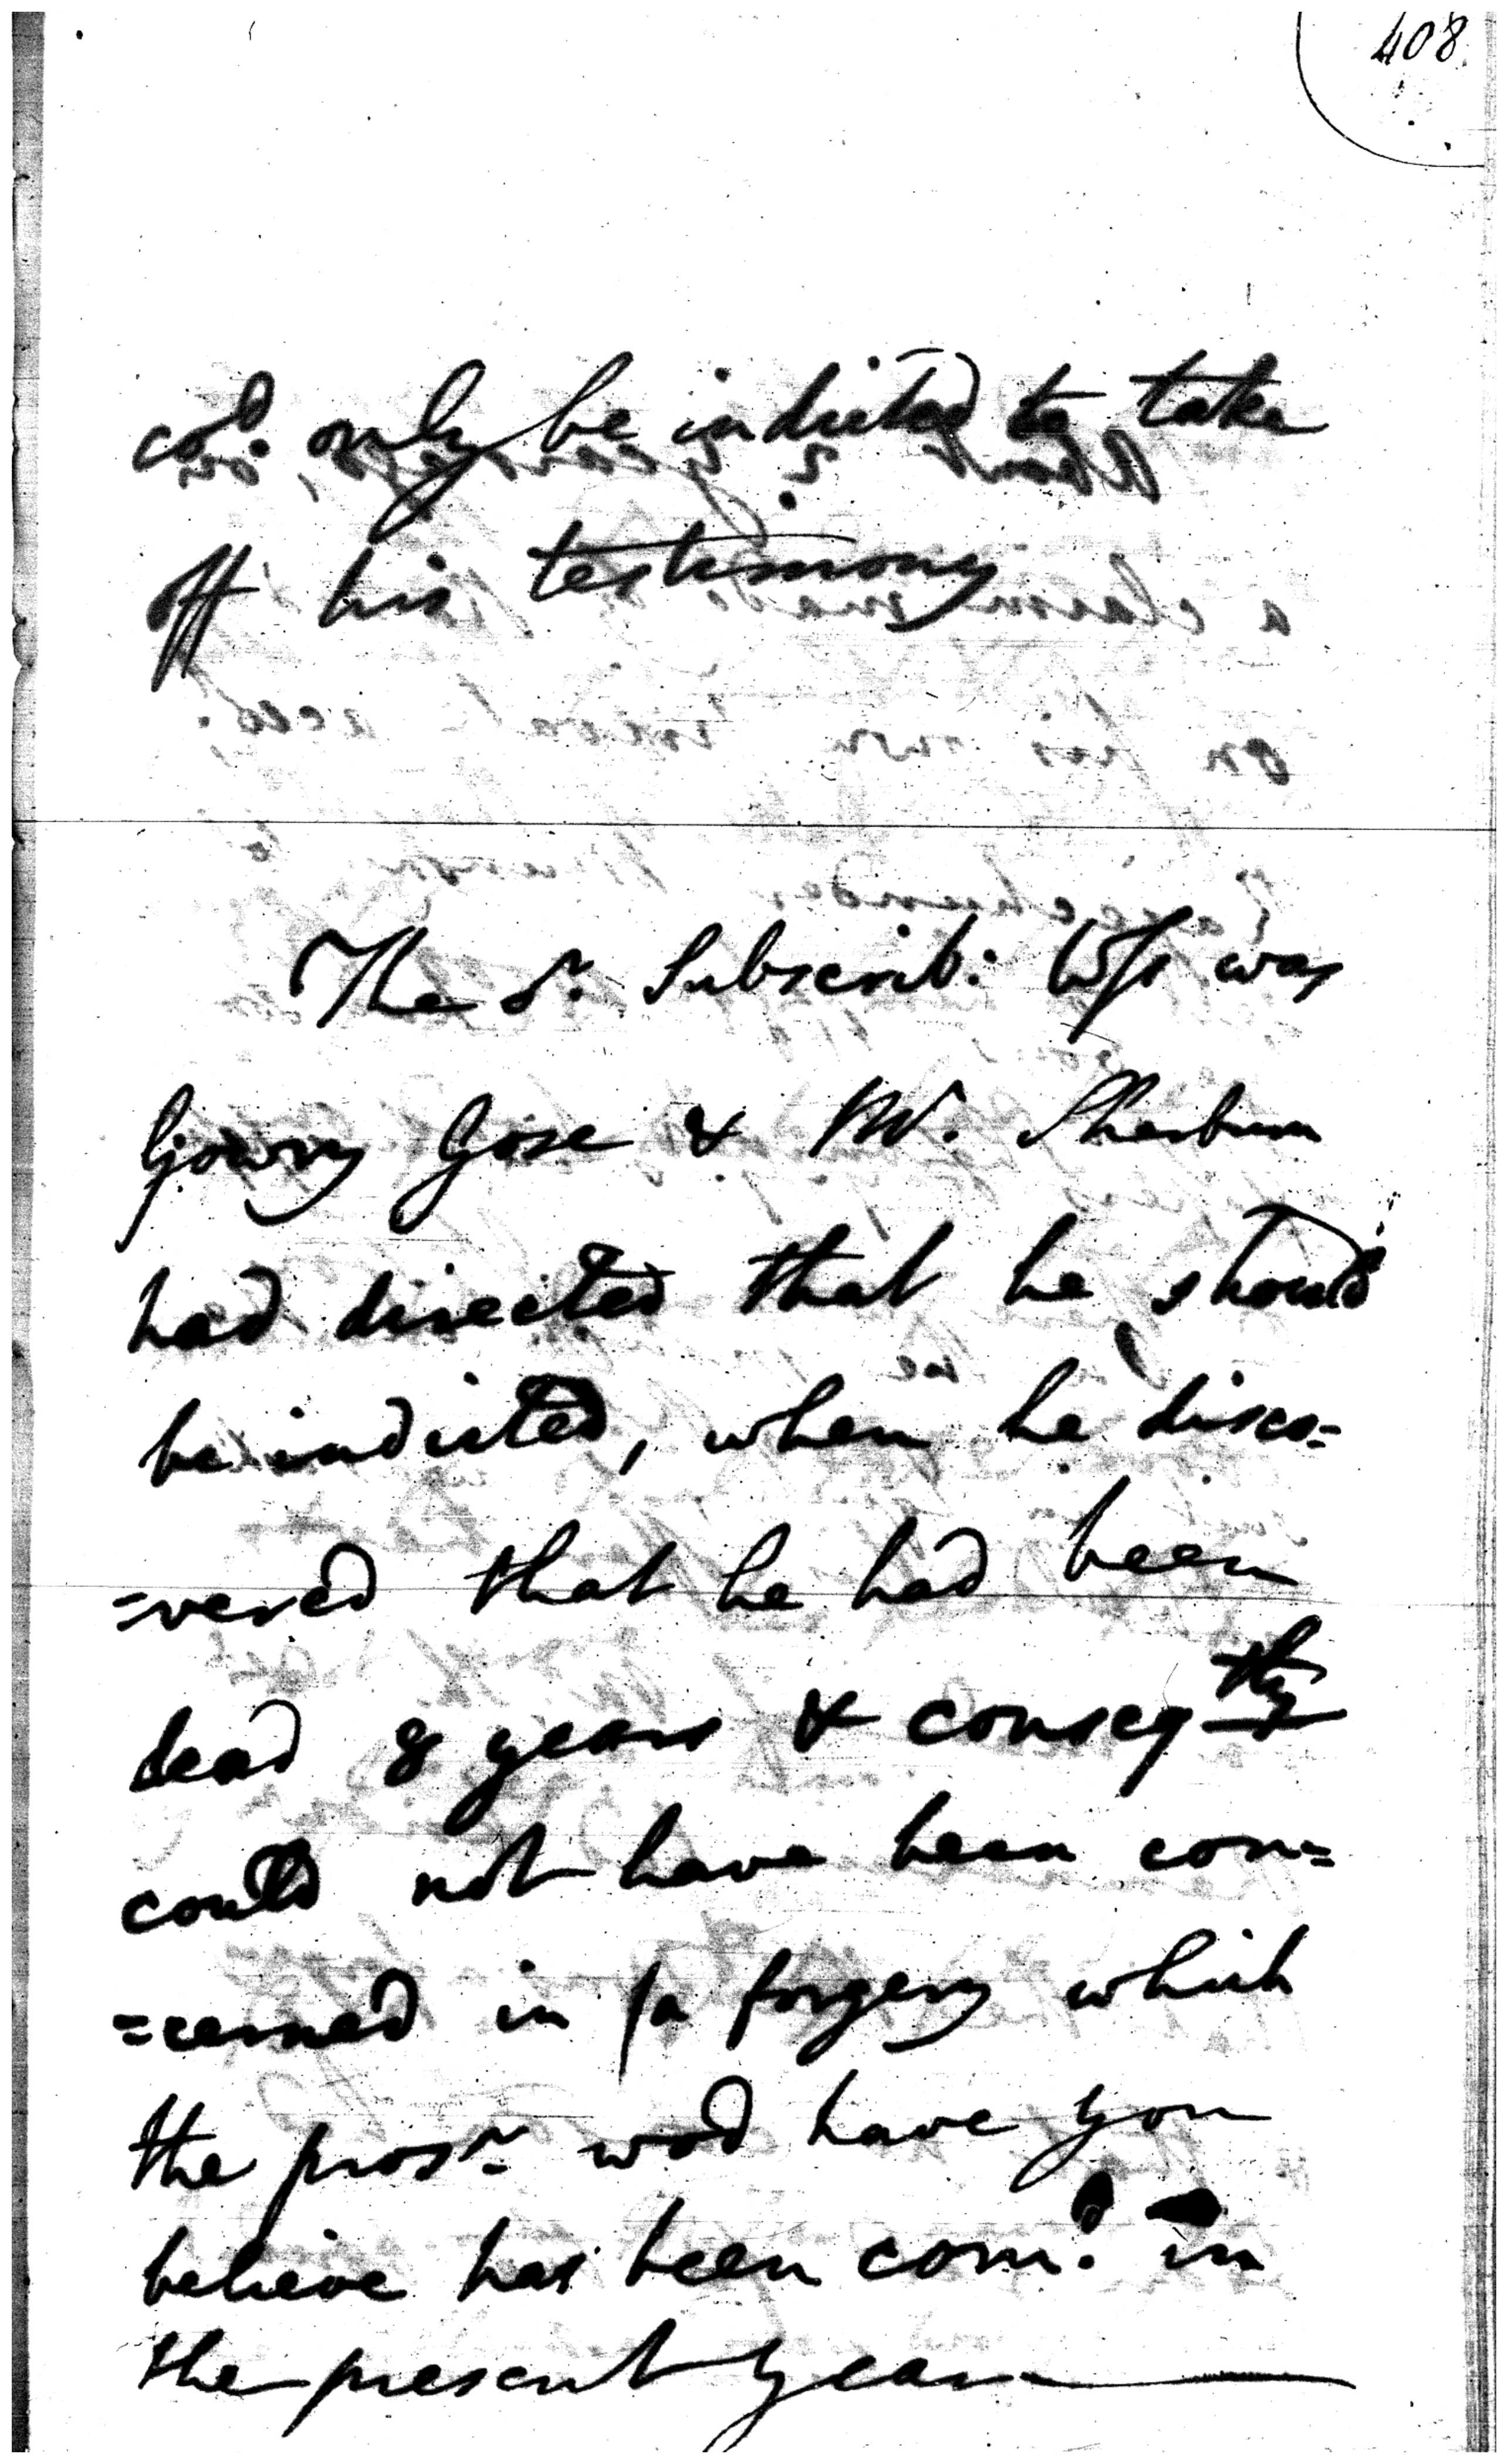 408
cod. only be indicted to take
off his testimony
The Sr. Subscrib: Wss was
Gowry Gose & Mr. Sherburn
had directed that he should
be indicted, when he disco=
=vered that he had been
dead 8 years & conseqtly
could not have been con=
=cerned in a forgery which
the prosr. wod have you
believe has been comd. in
the present year